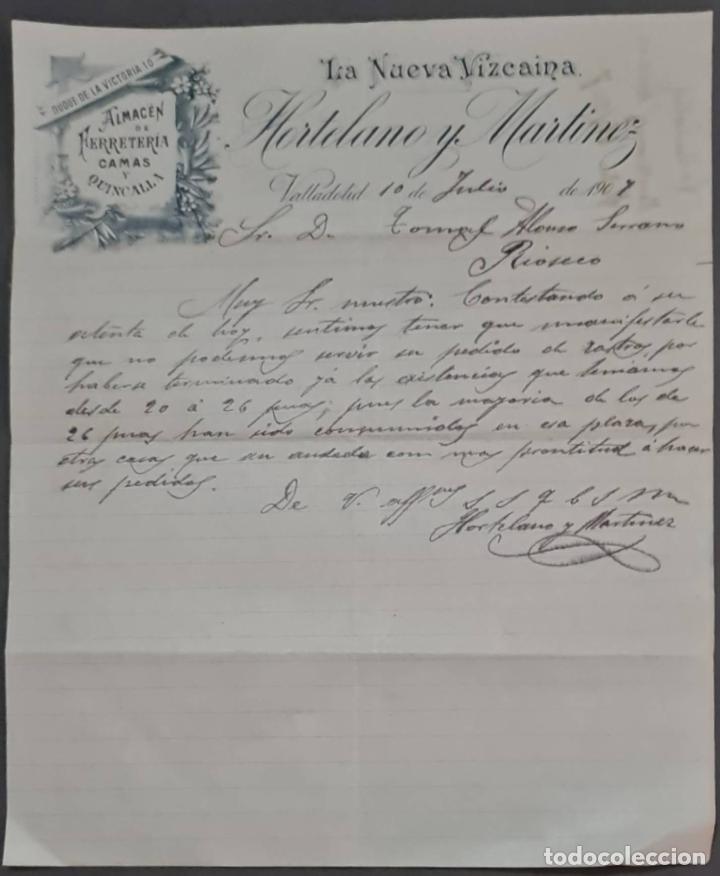 La Nueva Vizcaina.
Cᵉ DUQUE DE LA VICTORIA 10
ALMACÉN
DE
FERRETERÍA
CAMAS
Y
QUINCALLA
Hortelano y Martinez
Valladolid 10 de Julio de 1907
Sr. D. Alonso Serrano
Rioseco
Muy Sr. nuestro: Contestando á su
atenta de hoy, sentimos tener que manifestarle
que no podemos servir su pedido de rastros, por
haberse terminado yá las existencias que teniamos
desde 20 á 26 puas; pues la mayoria de los de
26 puas han sido consumidos en esa plaza, por
otras casas que han andado con mas prontitud á hacer
sus pedidos.
De V. affmos s s q b s m
Hortelano y Martinez
todocoleccion
todocoleccion.net